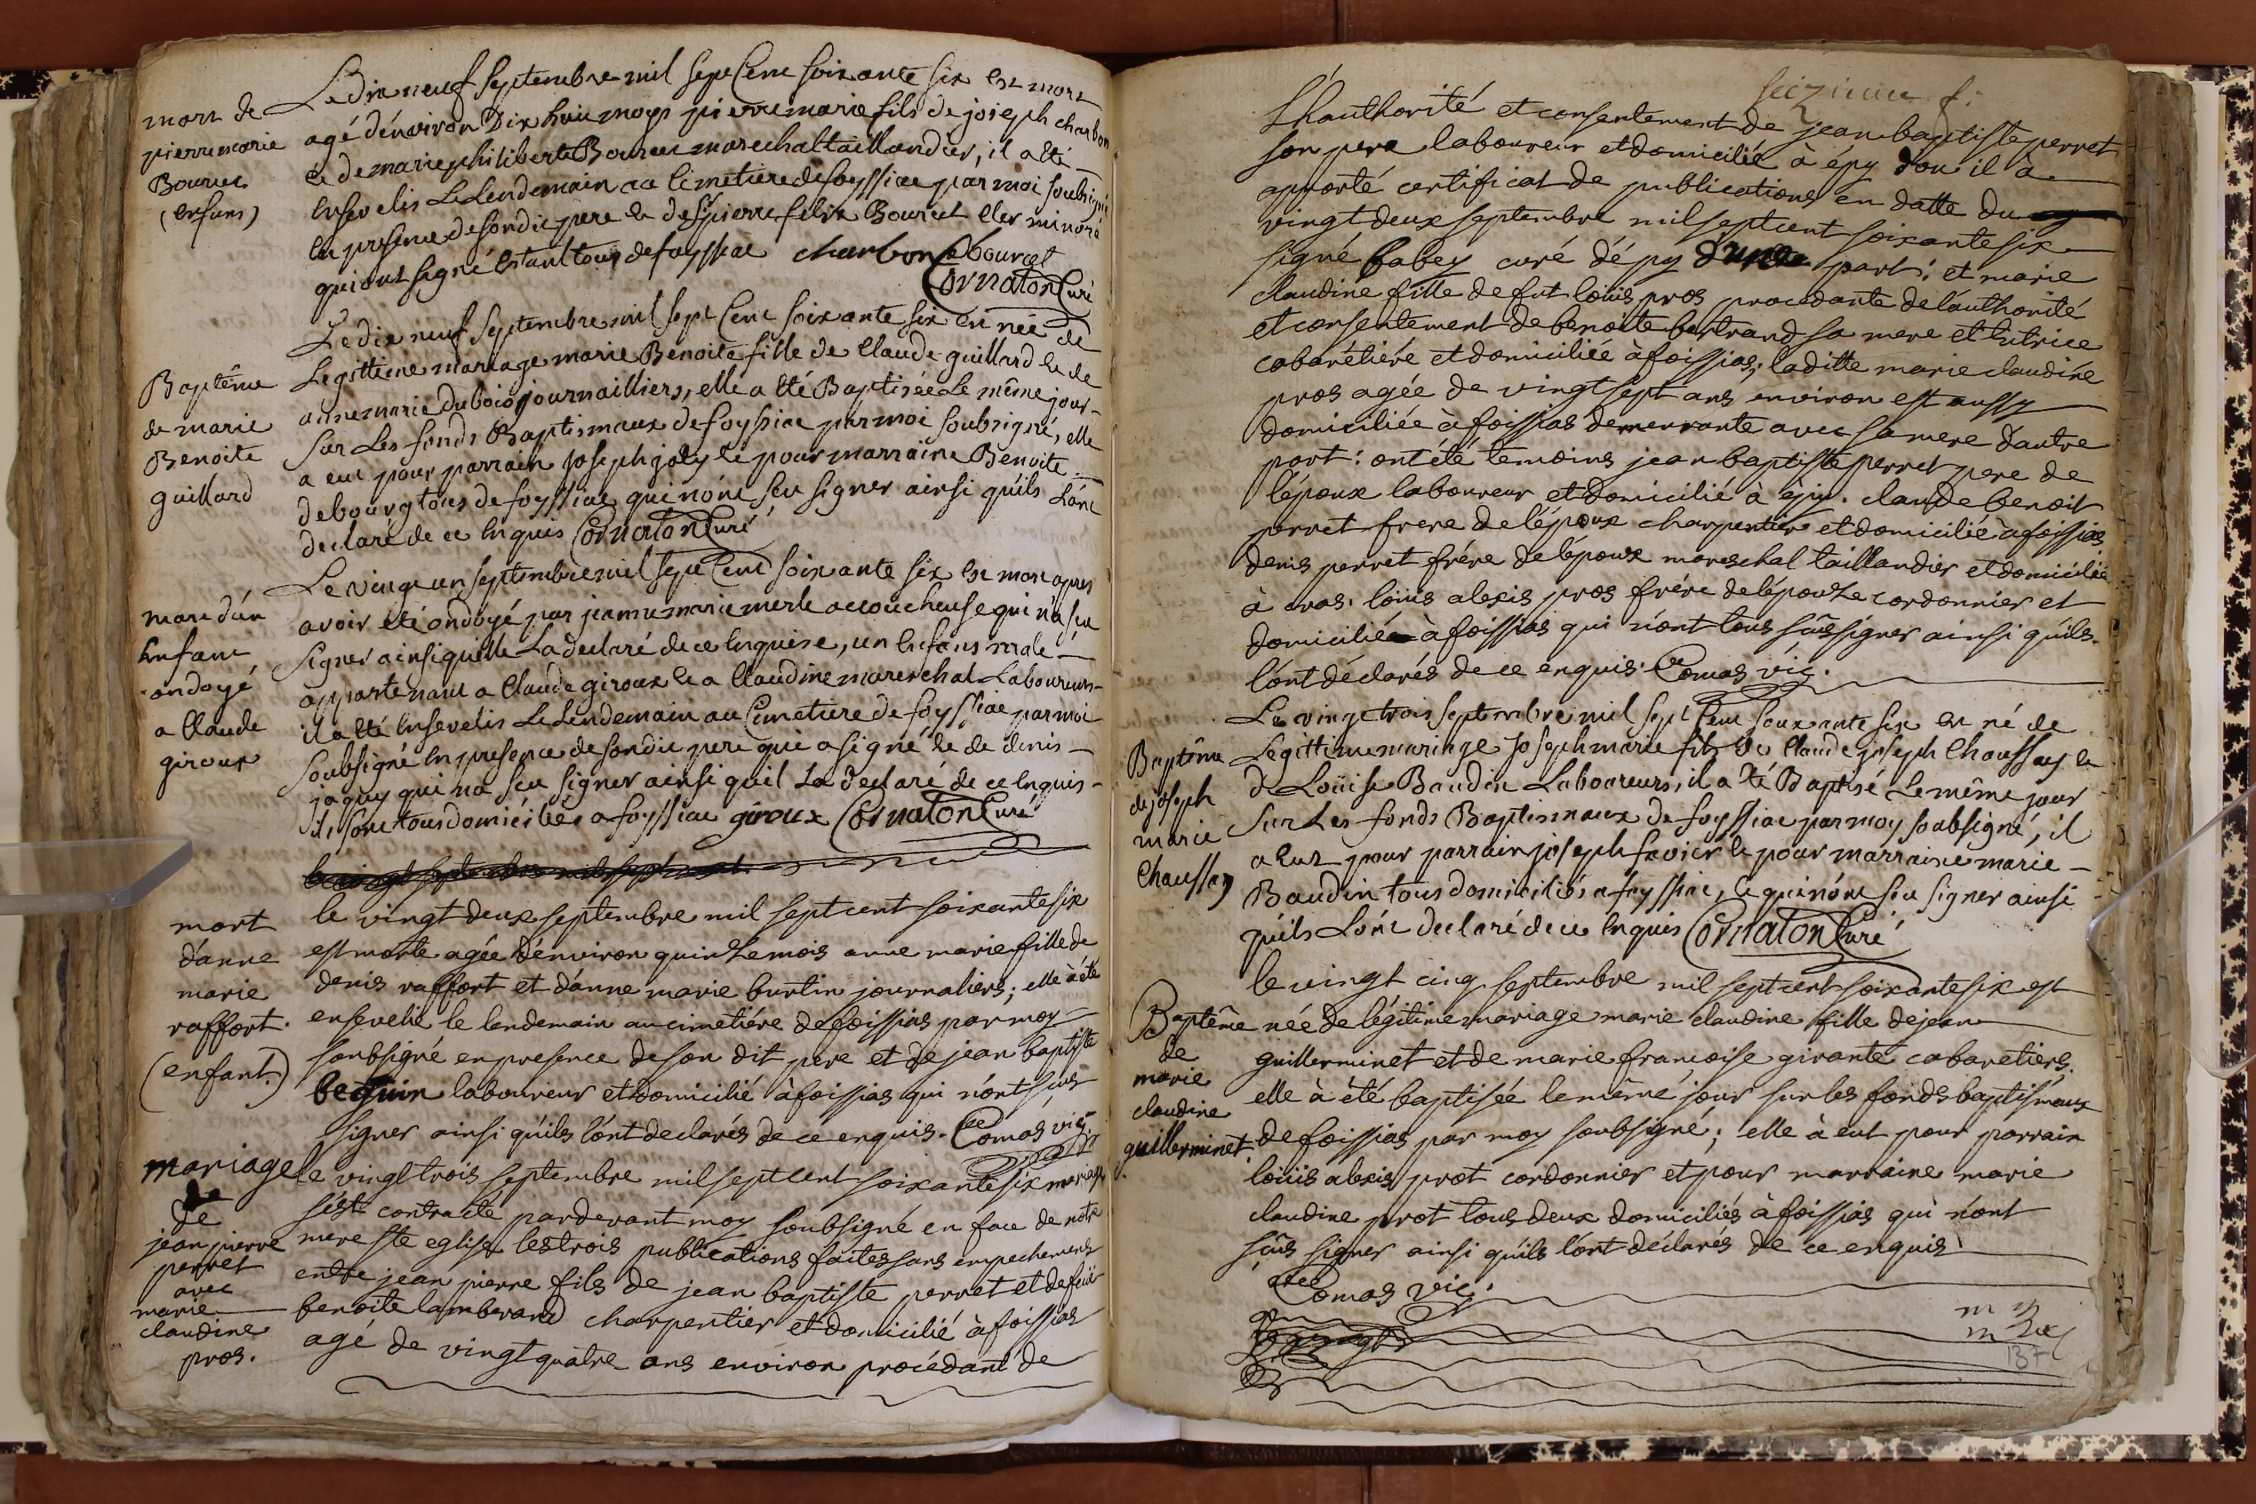 mort de
pierre marie
Bourcet
(enfant)
Le dix neuf septembre mil sept Cent soixante six est mort
agé d'environ Dix huit moys pierre marie fils de joseph charbon
et de marie philiberte Bourcet marechal taillandier, il a été
Ensevelis Le Lendemain au Cimetiere de foyssiac par moi soubsigné
En presence de son dit pere et de Sr pierre felix Bourcet cler minoré
qui ont signé Etant tous de foyssiac charbon bourcet
Cornaton Curé
Baptême
de marie
Benoite
guillard
Le dix neuf septembre mil sept Cent soixante six est née de
Legittime mariage marie Benoite fille de Claude guillard et de
anne marie dubois journailliers, elle a été Baptisée Le même jour
Sur Les fonds Baptismaux de foyssiac par moi soubsigné, elle
a eut pour parrain joseph joly et pour marraine Benoite
debourg tous de foyssiac qui n'ont sçu signer ainsi qu'ils L'ont
declaré de ce Enquis Cornaton Curé
mort d'un
Enfant
ondoyé
a Claude
giroux
Le vingt un septembre mil sept Cent soixante six est mort apres
avoir eté ondoyé par jeanne marie merle accoucheuse qui n'a sçu
signer ainsi quelle La declaré de ce Enquise, un Enfans male
appartenant a Claude giroux et a Claudine marechal Laboureurs
il a été Ensevelis Le Lendemain au Cimetiere de foyssiac par moi
soubsigné En presence de son dit pere qui a signé et de denis
joguy qui n'a sçu signer ainsi quil La declaré de ce Enquis
ils sont tous domiciliés a foyssiac giroux Cornaton Curé
mort
d'anne
marie
raffort.
(enfant.)
le vingt deux septembre mil sept cent soixante six
est morte agée d'environ quinze mois anne marie fille de
denis raffort et d'anne marie burtin journaliers; elle à été
ensevelie le lendemain au cimetiére de foissias par moy
soubsigné en presence de son dit pere et de jean baptiste
beguin laboureur et domicilié à foissias qui n'ont sçus
signer ainsi qu'ils l'ont declarés de ce enquis. Comas vic.
mariage
de
jean pierre
perret
avec
marie
claudine
pros.
le vingt trois septembre mil sept cent soixante six mariage
s'est contracté pardevant moy soubsigné en face de notre
mere ste eglise les trois publications faites sans empechement
entre jean pierre fils de jean baptiste perret et de feüe
benoite lamberand charpentier et domicilié à foissias
agé de vingt quatre ans environ procédant de
seizieme f.
L'hauthorité et consentement de jean baptiste perret
son pere laboureur et domicilié à épy d'ou il à
apporté certificat de publications en datte du
vingt deux septembre mil sept cent soixante six
signé babey curé d'épy d'une part; et marie
claudine fille de fut loüis pros procedante de l'authorité
et consentement de benoite bertrand sa mere et tutrice
cabarétiére et domiciliée à foissias; laditte marie claudine
pros agée de vingt sept ans environ est aussy
domiciliée à foissias demeurante avec sa mere d'autre
part: ont été temoins jean baptiste perret pere de
l'époux laboureur et domicilié à épy. claude benoit
perret frere de l'époux charpentier et domicilié à foissias
denis perret frére de l'époux mareschal taillandier et domicilié
à cras. loüis alexis pros frére de l'épouze cordonnier et
domicilié à foissias qui n'ont tous sçus signer ainsi qu'ils
l'ont déclarés de ce enquis. Comas vic.
Baptême
de joseph
marie
Chaussay
Le vingt trois septembre mil sept Cent soixante six est né de
Legittime mariage joseph marie fils de Claude joseph Chaussay et
de Loüise Baudin Laboureurs, il a été Baptisé Le même jour
Sur Les fonds Baptismaux de foyssiac par moy soubsigné, il
a Eut pour parrain joseph favier et pour marraine marie
Baudin tous domiciliés a foyssiac, et qui n'ont sçu signer ainsi
qu'ils L'ont declaré de ce Enquis Cornaton Curé
Baptême
de
marie
claudine
guilleminet.
le vingt cinq septembre mil sept cent soixante six est
née de légitime mariage marie claudine fille de jean
guillerminet et de marie francoise girante cabaretiers.
elle à été baptisée le même jour sur les fonds baptismaux
de foissias par moy soubsigné; elle à eut pour parrain
loüis alexis prot cordonnier et pour marraine marie
claudine prot tous deux domiciliés à foissias qui n'ont
sçûs signer ainsi qu'ils l'ont déclarés de ce enquis
Comas vic.
137